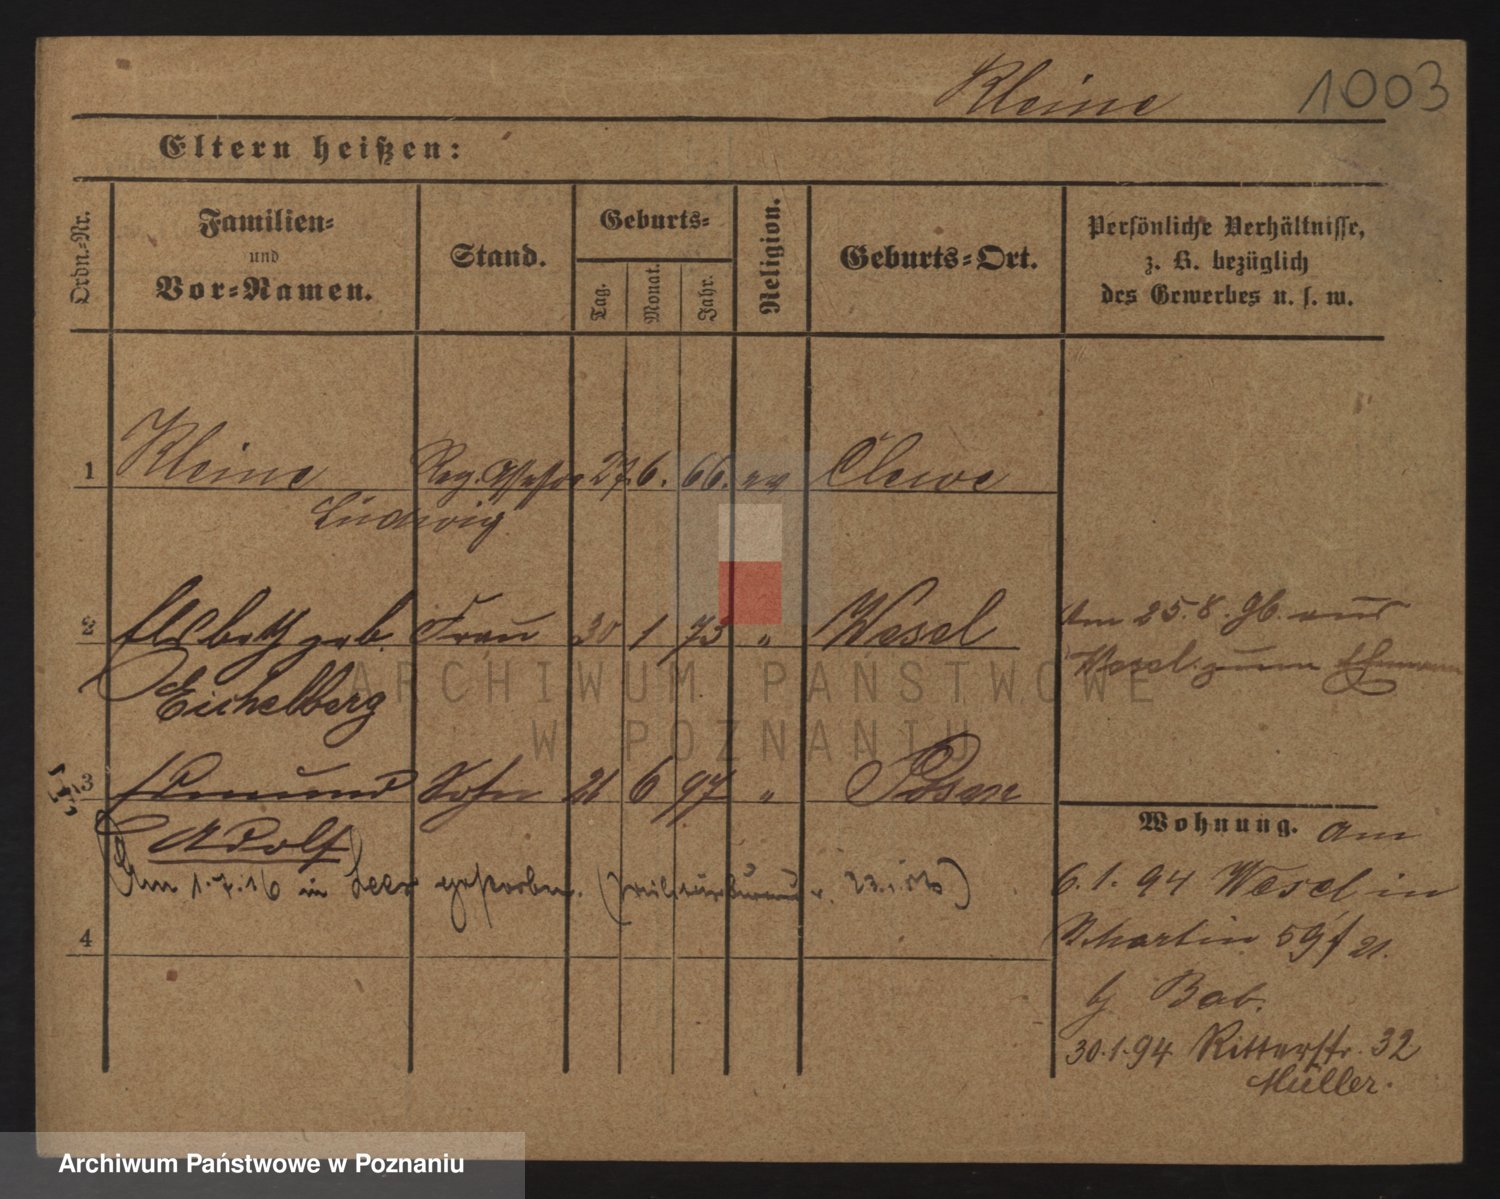 Kleine 1003
Eltern heißen:
Ordn.-Nr.
Familien-
und
Vor-Namen.
Stand.
Geburts-
Tag.
Monat.
Jahr.
Religion.
Geburts-Ort.
Persönliche Verhältnisse,
z. B. bezüglich
des Gewerbes u. s. w.
1 Kleine Reg. Assessor 27. 6. 66. ev Cleve
Ludwig
2 Elsbeth geb. Frau 30 1 73 " Wesel
Eichelberg
Am 25.8.96. aus
Wesel zum Ehemann
ARCHIWUM PAŃSTWOWE
W POZNANIU
3 Edmund Sohn 21 6 97 " Posen
Adolf
Am 1.7.16 in gestorben.
4
Wohnung. Am
6.1.94 Wesel in
Martin 59 21.
b/ Bab.
30.1.94 Ritterstr. 32
Müller.
Archiwum Państwowe w Poznaniu